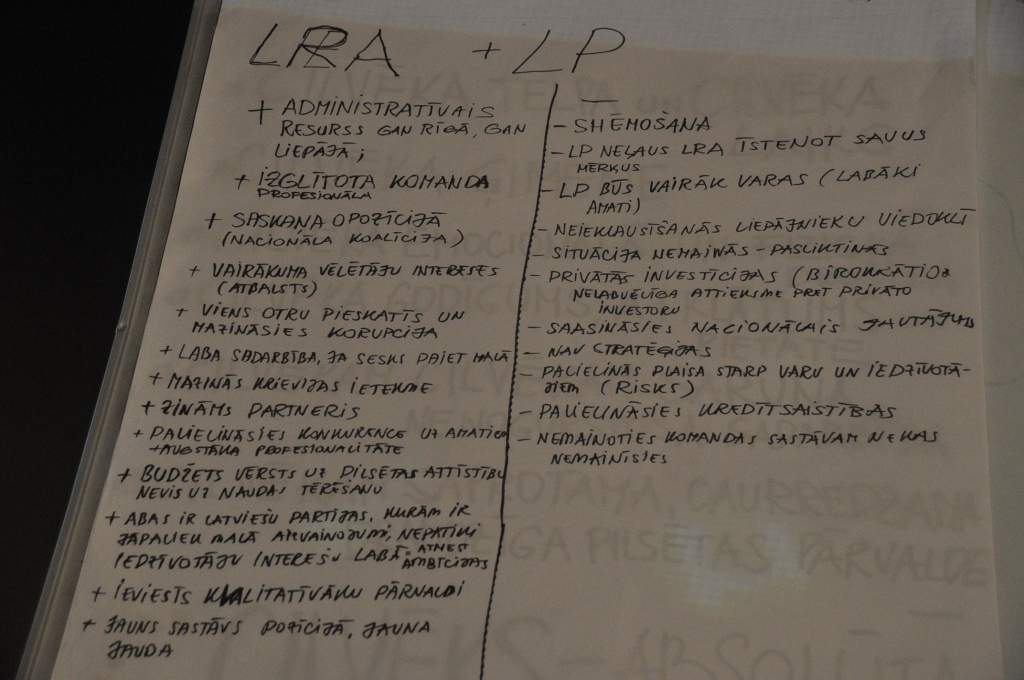 LRA + LP
+ ADMINISTRATĪVAIS
RESURSS GAN RĪGĀ, GAN
LIEPĀJĀ;
+ IZGLĪTOTA KOMANDA
PROFESIONĀLA
+ SASKAŅA OPOZĪCIJĀ
(NACIONĀLA KOALĪCIJA)
+ VAIRĀKUMA VĒLĒTĀJU INTERESES
(ATBALSTS)
+ VIENS OTRU PIESKATĪS UN
MAZINĀSIES KORUPCIJA
+ LABA SADARBĪBA, JA SESKS PAIET MALĀ
+ MAZINĀS KRIEVIJAS IETEKME
+ ZINĀMS PARTNERIS
+ PALIELINĀSIES KONKURENCE UZ AMATIEM
→AUGSTĀKA PROFESIONALITĀTE
+ BUDŽETS VĒRSTS UZ PILSĒTAS ATTĪSTĪBU
NEVIS UZ NAUDAS TĒRĒŠANU
+ ABAS IR LATVIEŠU PARTIJAS, KURĀM IR
JĀPALIEK MALĀ AIZVAINOJUMI, NEPATIKI
IEDZĪVOTĀJU INTEREŠU LABĀ. ATMEST
AMBĪCIJAS
+ IEVIESĪS KVALITATĪVĀKU PĀRVALDI
+ JAUNS SASTĀVS POZĪCIJĀ, JAUNA
JAUDA
—
- SHĒMOŠANA
- LP NEĻAUS LRA ĪSTENOT SAVUS
MĒRĶUS
- LP BŪS VAIRĀK VARAS (LABĀKI
AMATI)
- NEIEKLAUSĪŠANĀS LIEPĀJNIEKU VIEDOKLĪ
- SITUĀCIJA NEMAINĀS - PASLIKTINĀS
- PRIVĀTĀS INVESTĪCIJAS (BIROKRĀTIJA
NELABVĒLĪGA ATTIEKSME PRET PRIVĀTO
INVESTORU
- SAASINĀSIES NACIONĀLAIS JAUTĀJUMS
- NAV STRATĒĢIJAS
- PALIELINĀS PLAISA STARP VARU UN IEDZĪVOTĀ-
JIEM (RISKS)
- PALIELINĀSIES KREDĪTSAISTĪBAS
- NEMAINOTIES KOMANDAS SASTĀVAM NEKAS
NEMAINĪSIES